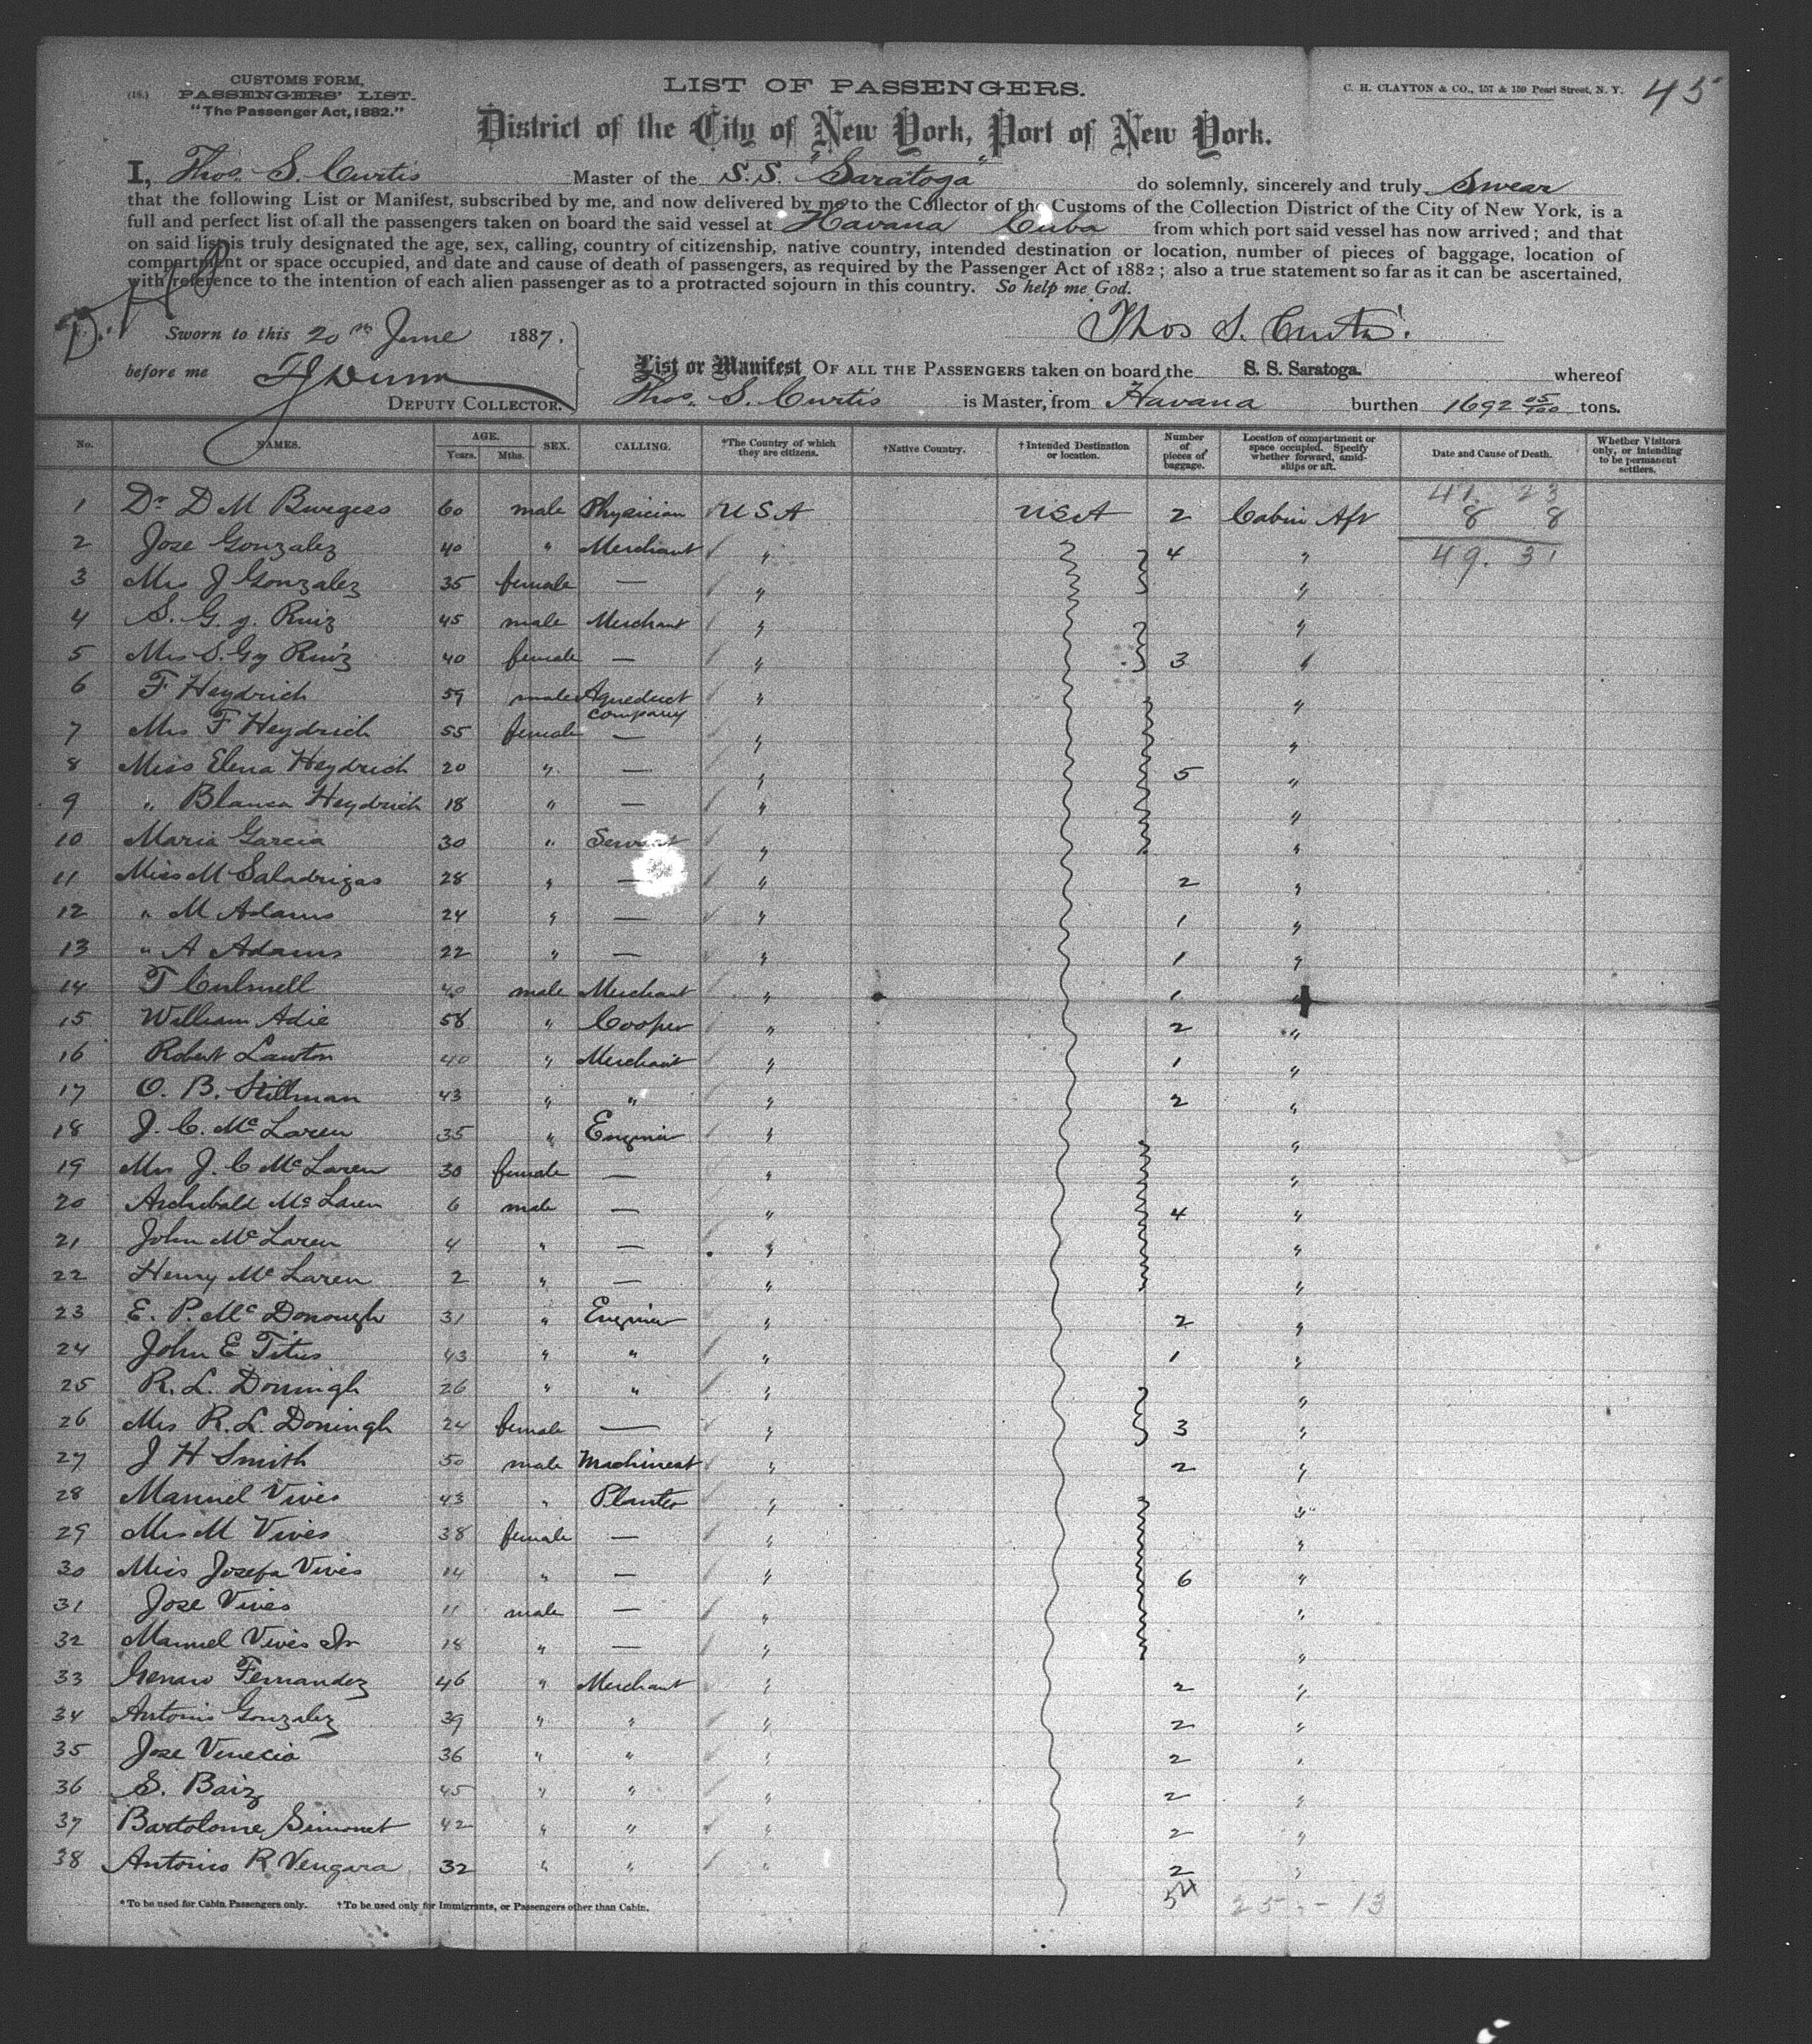 CUSTOMS FORM,
(18.) PASSENGERS' LIST.
"The Passenger Act, 1882."
LIST OF PASSENGERS.
C. H. CLAYTON & CO., 157 & 159 Pearl Street, N. Y. 45
District of the City of New York, Port of New York.
I, Thos. S. Curtis Master of the S.S. "Saratoga" do solemnly, sincerely and truly Swear
that the following List or Manifest, subscribed by me, and now delivered by me to the Collector of the Customs of the Collection District of the City of New York, is a
full and perfect list of all the passengers taken on board the said vessel at Havana Cuba from which port said vessel has now arrived; and that
on said list is truly designated the age, sex, calling, country of citizenship, native country, intended destination or location, number of pieces of baggage, location of
compartment or space occupied, and date and cause of death of passengers, as required by the Passenger Act of 1882; also a true statement so far as it can be ascertained,
with reference to the intention of each alien passenger as to a protracted sojourn in this country. So help me God.
Sworn to this 20th June 1887.
Thos S. Curtis.
before me
DEPUTY COLLECTOR.
List or Manifest OF ALL THE PASSENGERS taken on board the S. S. Saratoga. whereof
Thos. S. Curtis is Master, from Havana burthen 1692 05/100 tons.
No. NAMES. AGE. Years. Mths. SEX. CALLING. *The Country of which they are citizens. †Native Country. †Intended Destination or location. Number of pieces of baggage. Location of compartment or space occupied. Specify whether forward, amidships or aft. Date and Cause of Death. Whether Visitors only, or intending to be permanent settlers.
1 Dr D M Burgess 60 male Physician USA USA 2 Cabin Aft 41. 23
8 8
2 Jose Gonzalez 40 " Merchant " 4 " 49. 31
3 Mrs J Gonzalez 35 female — " "
4 S. G. y. Ruiz 45 male Merchant " "
5 Mrs S. G y Ruiz 40 female — " 3 "
6 F Heydrich 59 male Aqueduct company " "
7 Mrs F Heydrich 55 female — " "
8 Miss Elena Heydrich 20 " — " 5 "
9 " Blanca Heydrich 18 " — " "
10 Maria Garcia 30 " Servant " "
11 Miss M Saladrigas 28 " — " 2 "
12 " M Adams 24 " — " 1 "
13 " A Adams 22 " — " 1 "
14 T Culmell 40 male Merchant " 1 "
15 William Adie 58 " Cooper " 2 "
16 Robert Lawton 40 " Merchant " 1 "
17 O. B. Stillman 43 " " " 2 "
18 J. C. Mc Laren 35 " Enginer " "
19 Mrs J. C Mc Laren 30 female — " "
20 Archibald Mc Laren 6 male — " 4 "
21 John Mc Laren 4 " — " "
22 Henry Mc Laren 2 " — " "
23 E. P. Mc Donough 31 " Enginer " 2 "
24 John E Titus 43 " " " 1 "
25 R. L. Doningh 26 " " " "
26 Mrs R. L. Doningh 24 female — " 3 "
27 J H Smith 50 male Machinest " 2 "
28 Manuel Vives 43 " Planter " "
29 Mrs M Vives 38 female — " "
30 Miss Josefa Vives 14 " — " 6 "
31 Jose Vives 11 male — " "
32 Manuel Vives Jr 18 " — " "
33 Genaro Fernandez 46 " Merchant " 2 "
34 Antonio Gonzalez 39 " " " 2 "
35 Jose Venecia 36 " " " 2 "
36 S. Baiz 45 " " " 2 "
37 Bartolome Simonet 42 " " " 2 "
38 Antonio R Vengara 32 " " " 2 "
54 25 - 13
*To be used for Cabin Passengers only. †To be used only for Immigrants, or Passengers other than Cabin.